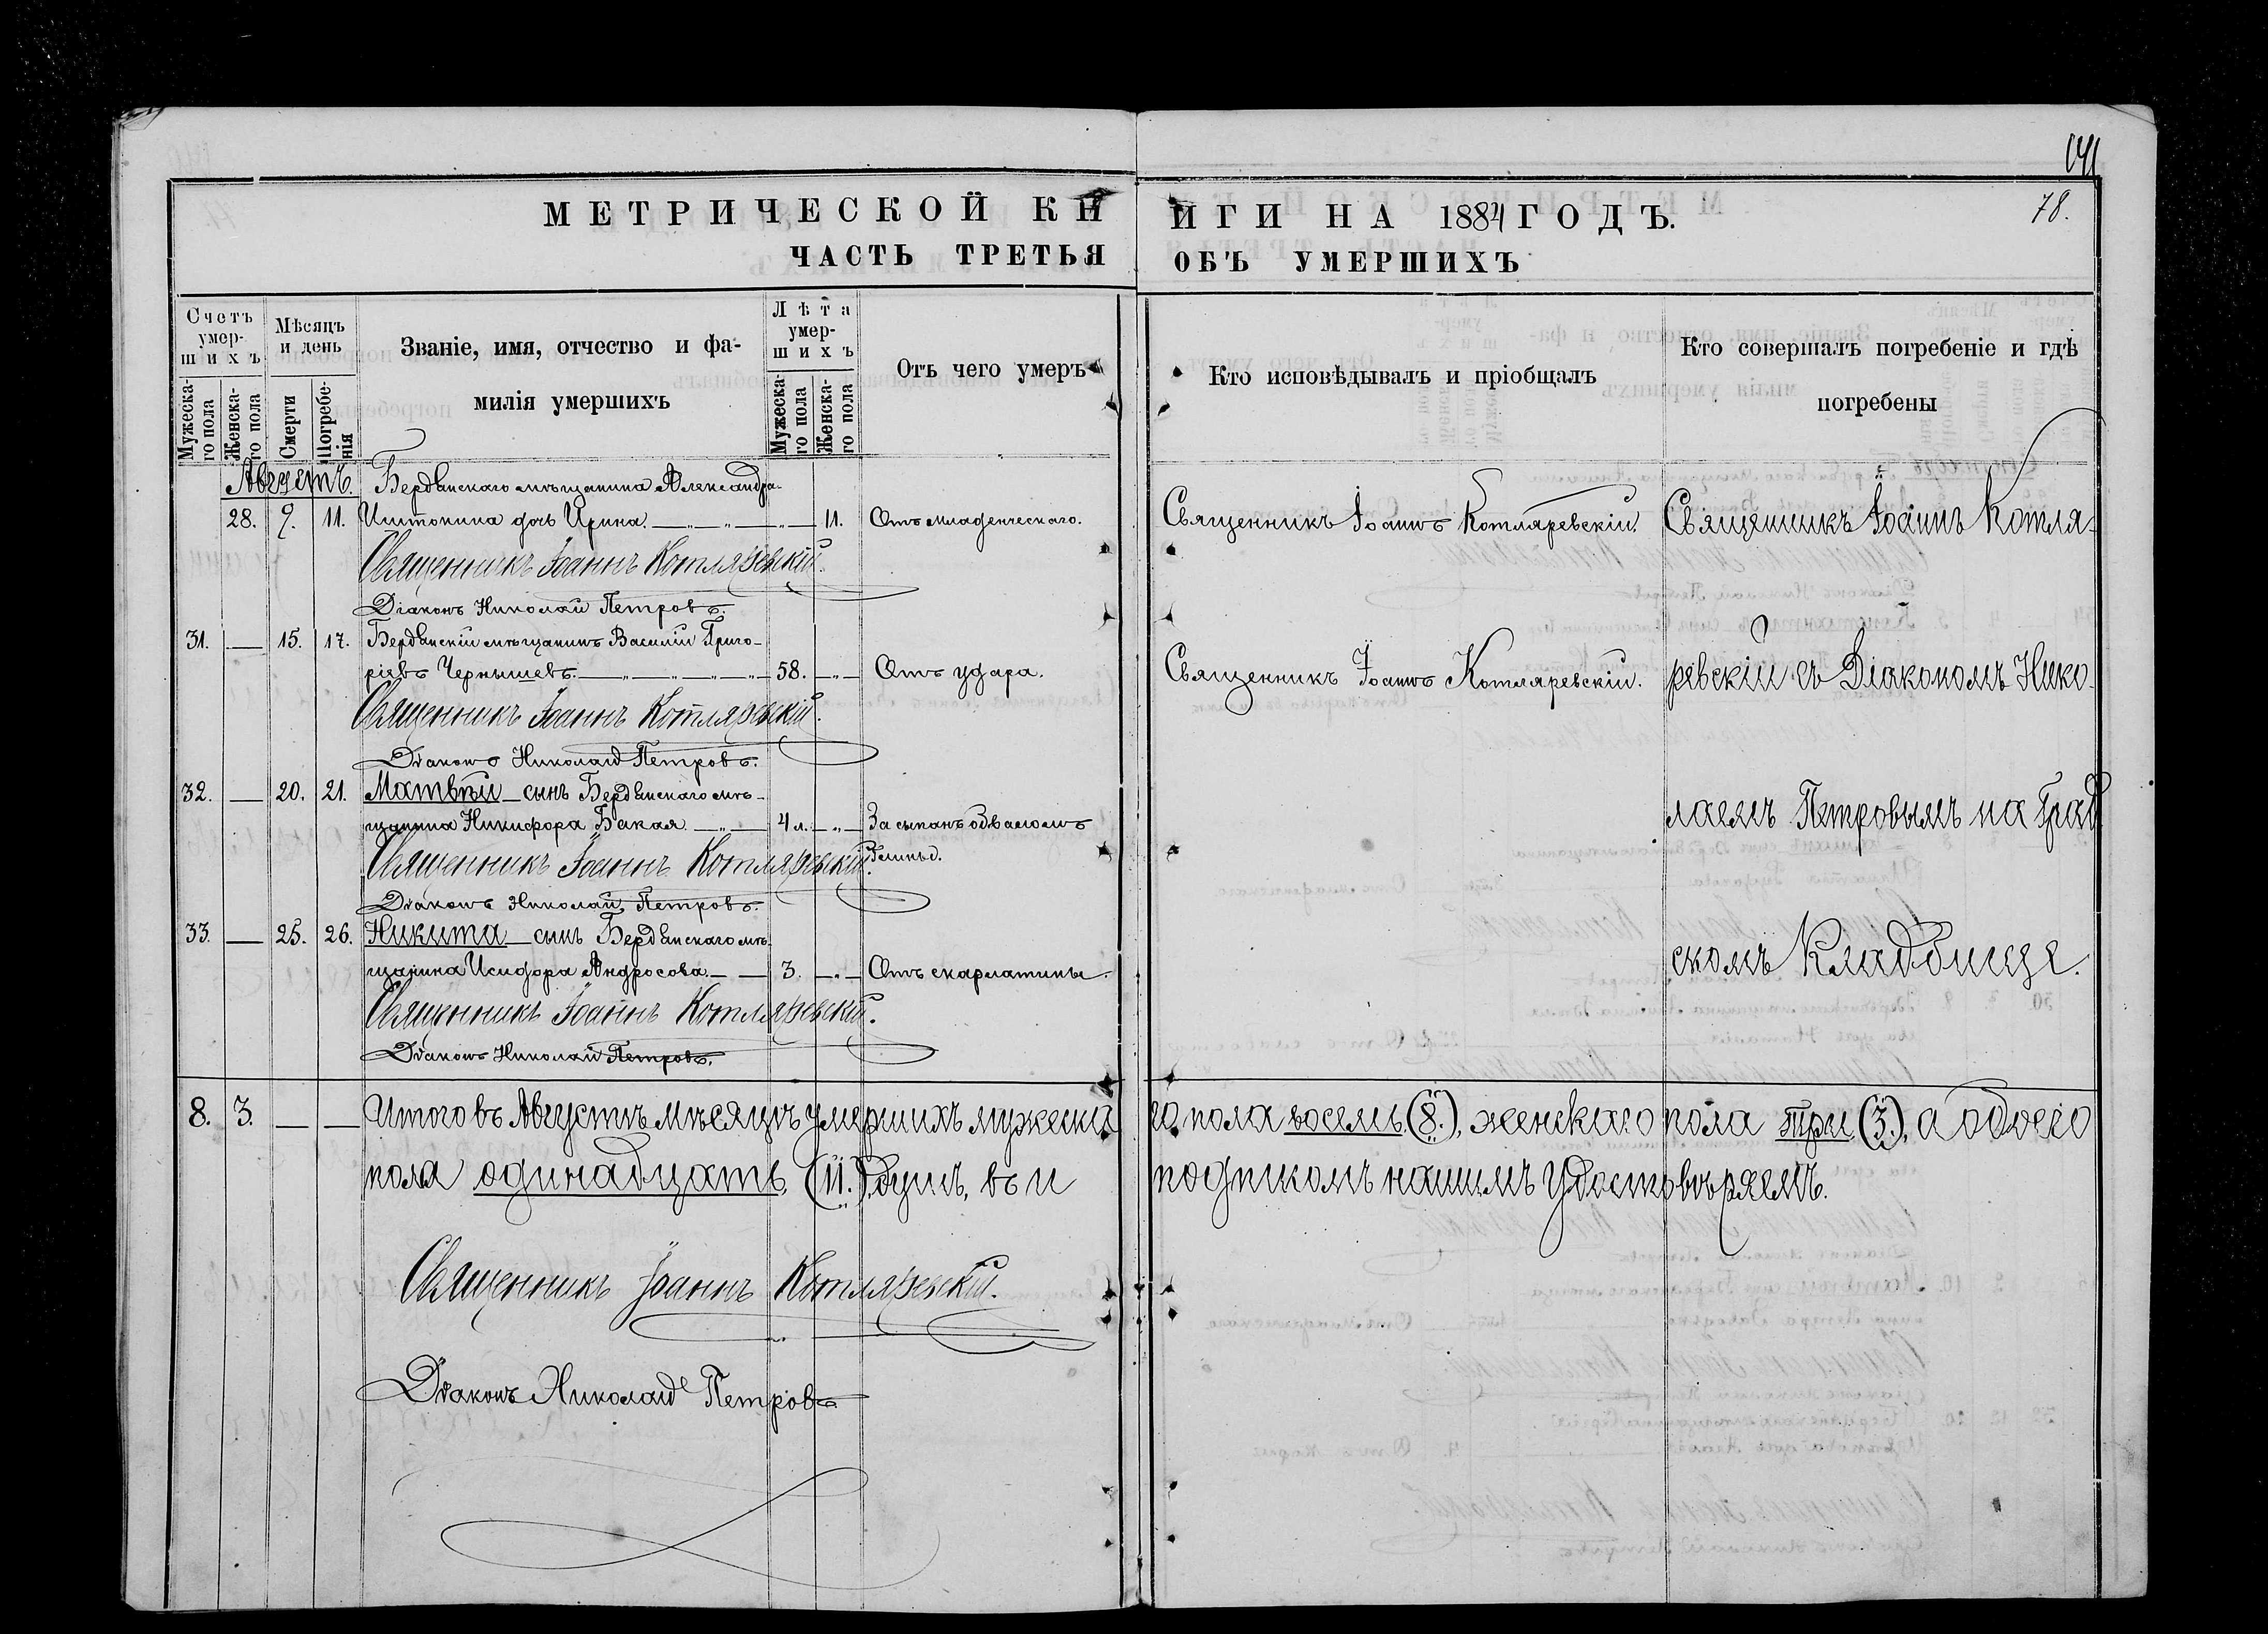 141
78.
МЕТРИЧЕСКОЙ КНИГИ НА 1884 ГОДЪ.
ЧАСТЬ ТРЕТЬЯ ОБЪ УМЕРШИХЪ
Счетъ умершихъ
Мужескаго пола
Женскаго пола
Мѣсяцъ и день
Смерти
Погребенія
Званіе, имя, отчество и фамилія умершихъ
Лѣта умершихъ
Мужескаго пола
Женскаго пола
Отъ чего умеръ
Кто исповѣдывалъ и пріобщалъ
Кто совершалъ погребеніе и гдѣ погребены
Августъ. Бердянскаго мѣщанина Александра
28. 9. 11. дочь Ирина. 11. Отъ младенческаго. Священникъ Іоаннъ Котляревскій. Священникъ Іоаннъ Котля-
Священникъ Іоаннъ Котляревскій.
Діаконъ Николай Петровъ.
31. — 15. 17. Бердянскій мѣщанинъ Василій Григо-
ріевъ Чернышевъ. 58. Отъ удара. Священникъ Іоаннъ Котляревскій. ревскій съ Діакономъ Нико-
Священникъ Іоаннъ Котляревскій.
Діаконъ Николай Петровъ.
32. — 20. 21. Матвѣй сынъ Бердянскаго мѣ-
щанина Никифора Бакая 4 л. Засыпанъ обваломъ лаемъ Петровымъ на Град
Священникъ Іоаннъ Котляревскій.
Діаконъ Николай Петровъ.
33. — 25. 26. Никита сынъ Бердянскаго мѣ-
щанина Исидора Андросова 3. Отъ скарлатины. скомъ Кладбище.
Священникъ Іоаннъ Котляревскій.
Діаконъ Николай Петровъ.
8. 3. — — Итого въ Августѣ мѣсяцѣ умершихъ мужеска го пола восемь (8.), женскаго пола три (3.), а обоего
пола одинадцать (11.) душъ, въ чемъ подпискомъ нашимъ удостовѣряемъ.
Священникъ Іоаннъ Котляревскій.
Діаконъ Николай Петровъ